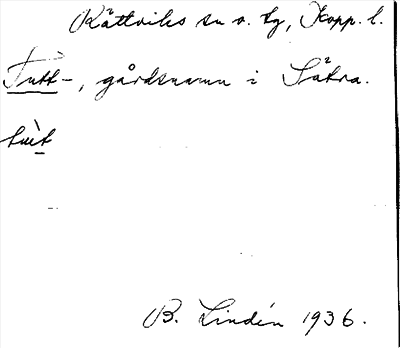 Rättviks sn o. tg, Kopp. l.
Tutt-, gårdsnamn i Sätra.
tùt
B. Lindén 1936.